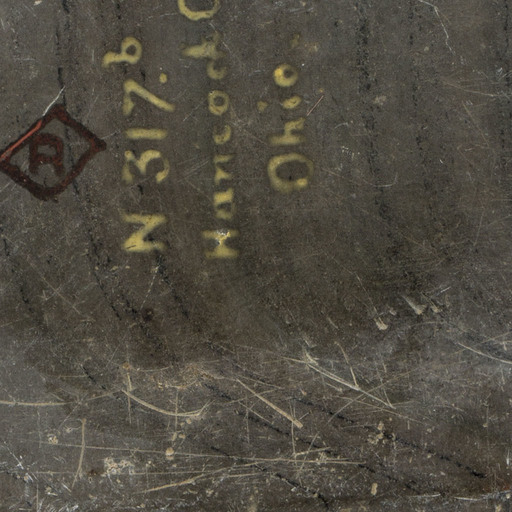 N 317.6
Hancock C
Ohio
R